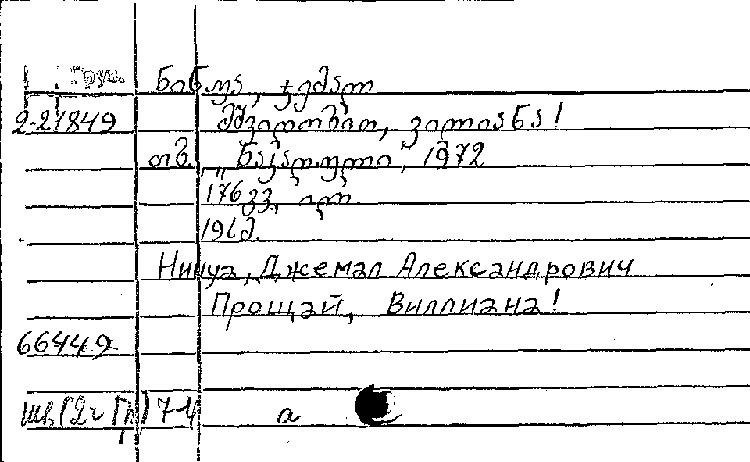 Груз. ნინუა, ჯემალ
2-27849 მშვიდობით, ვილიანა!
თბ., „ნაკადული", 1972
176 გვ. ილ.
Нинуа, Джемал Александрович
Прощай, Виллиана!
66449
(2ч Гр) 7-4 а